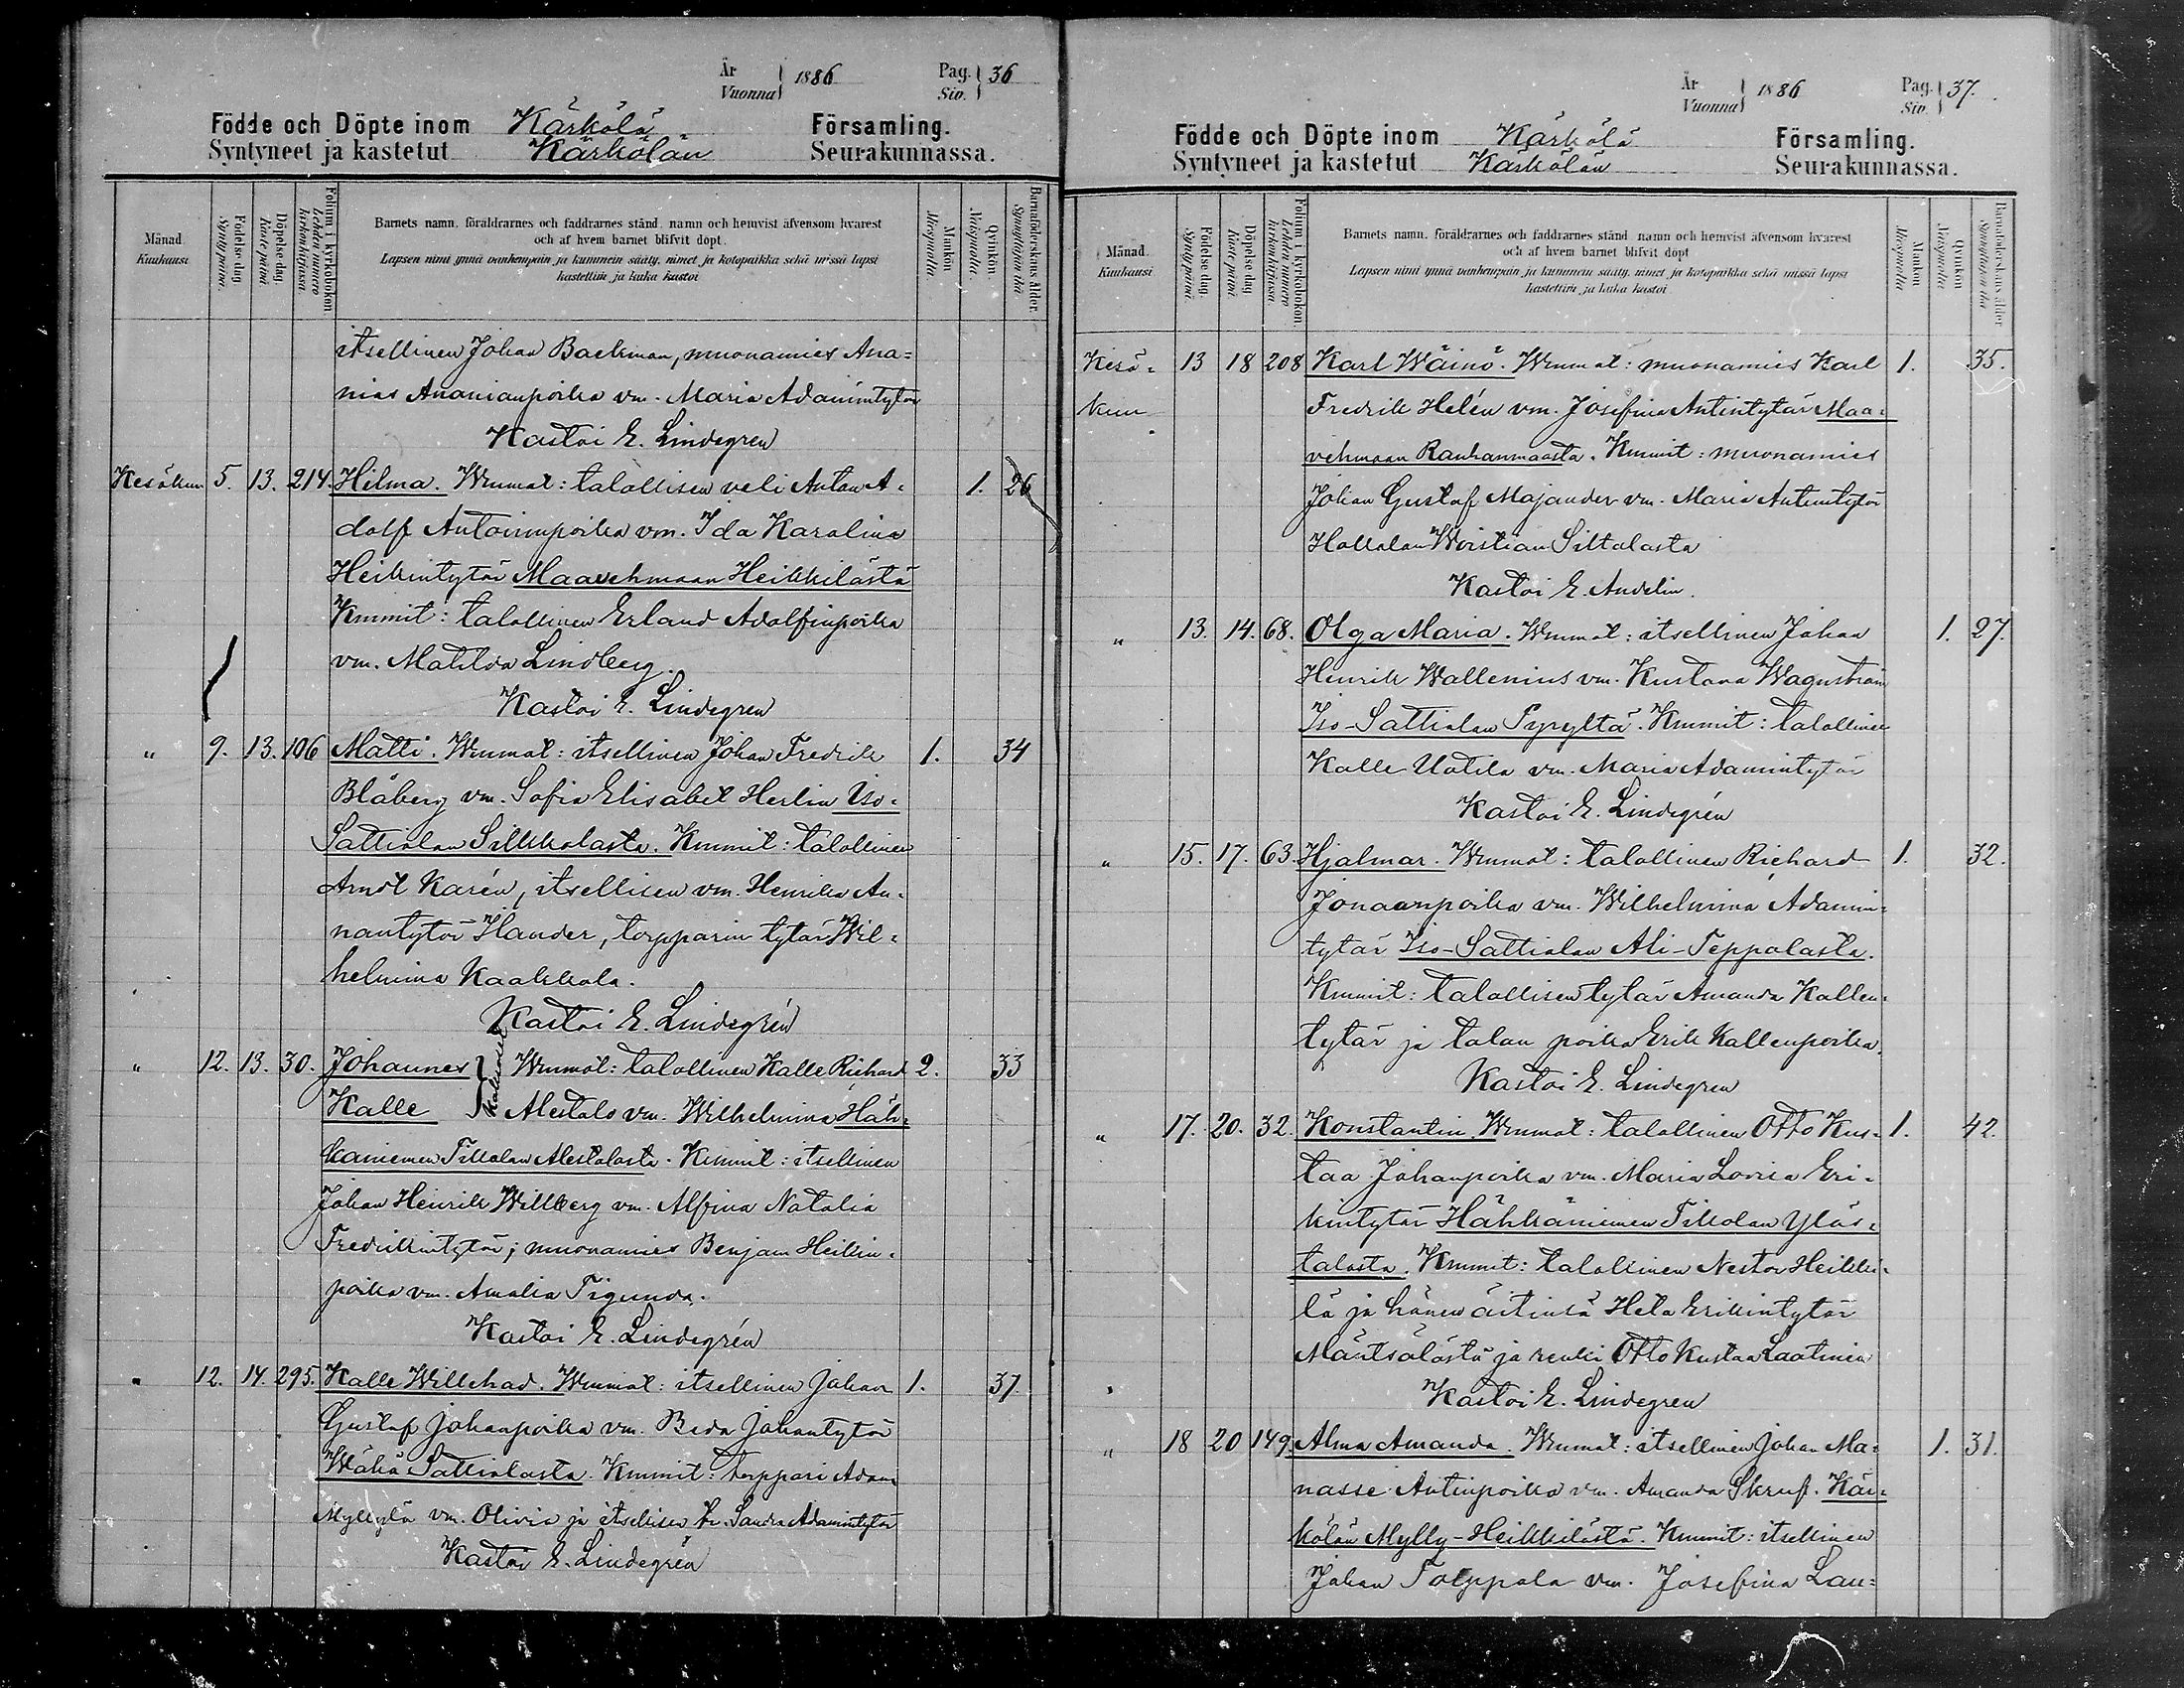 År Vuonna 1886 Pag. Siv. 36
Födde och Döpte inom Kärkölä Församling.
Syntyneet ja kastetut Kärkölän Seurakunnassa.
Månad Kuukausi
Födelse dag. Syntypäivä.
Döpelse dag. Kastepäivä
Folium i kyrkoboken Lehden numero kirkonkirjassa.
Barnets namn, föräldrarnes och faddrarnes stånd, namn och hemvist äfvensom hvarest
och af hvem barnet blifvit döpt.
Lapsen nimi ynnä vanhempain ja kummein sääty, nimet ja kotopaikka sekä missä lapsi
kastettiin ja kuka kastoi
Mankön Miespuolia.
Qvinkön Naispuolia.
Barnaföderskans ålder. Synnyttäjän ikä
itsellinen Johan Backman, muonamies Ana=
nias Ananianpoika vm. Maria Adamintytär
Kastoi E. Lindegren
Kesäkuu 5. 13. 214. Hilma. Wmmat: talollisen veli Anton A= 1. 26
dolf Antoninpoika vm. Ida Karolina
Heikintytär Maavehmaan Heikkilästä
Kummit: talollinen Erland Adolfinpoika
vm. Matilda Lindberg.
Kastoi E. Lindegren
" 9. 13. 106 Matti. Wmmat: itsellinen Johan Fredrik 1. 34
Blåberg vm. Sofia Elisabet Herlin Iso=
Sattialan Silkkolasta. Kummit: talollinen
Arndt Karén, itsellisen vm. Henrika An=
nantytär Hander, torpparin tytär Wil=
helmina Kaakkola.
Kastoi E. Lindegrén
" 12. 13. 30. Johannes } Kaksoiset Wmmat: talollinen Kalle Richard 2. 33
Kalle Alestalo vm. Wilhelmina Häh=
käniemen Tikkolan Alestalosta. Kummit: itsellinen
Johan Henrik Willberg vm. Alfina Natalia
Fredrikintytär; muonamies Benjam Heikin=
poika vm. Amalia Figunda.
Kastoi E. Lindegrén
" 12. 14. 295. Kalle Willehad. Wmmat: itsellinen Johan 1. 37
Gustaf Johanpoika vm. Beda Johantytär
Wähä Sattialasta. Kummit: torppari Adam
Myllylä vm. Olivia ja itsellisen tr. Sandra Adamintytär
Kastoi E. Lindegrén
År Vuonna 1886 Pag. Siv. 37.
Födde och Döpte inom Kärkölä Församling.
Syntyneet ja kastetut Kärkölän Seurakunnassa.
Månad Kuukausi
Födelse dag Syntypäivä
Döpelse dag Kastepäivä
Folium i kyrkoboken Lehden numero kirkonkirjassa
Barnets namn, föräldrarnes och faddrarnes stånd namn och hemvist äfvensom hvarest
och af hvem barnet blifvit döpt
Lapsen nimi ynnä vanhempain ja kummein sääty, nimet ja kotopaikka sekä missä lapsi
kastettiin ja kuka kastoi
Mankön Miespuolia
Qvinkön Naispuolia
Barnaföderskans ålder Synnyttäjän ikä
Kesä= 13 18 208 Karl Wäinö. Wmmat: muonamies Karl 1. 35.
kuu Fredrik Helén vm. Josefina Antintytär Maa=
vehmaan Rauhanmaasta. Kummit: muonamies
Johan Gustaf Majander vm. Maria Antintytär
Hollolan Woistian Siltalasta
Kastoi E. Andelin.
" 13. 14. 68. Olga Maria. Wmmat: itsellinen Johan 1. 27.
Henrik Wallenius vm. Kustava Wagnström
Iso-Sattialan Pyryltä. Kummit: talollinen
Kalle Uotila vm. Maria Adamintytär
Kastoi E. Lindegrén
" 15. 17. 63. Hjalmar. Wmmat: talollinen Richard 1. 32.
Jonaanpoika vm. Wilhelmina Adamin=
tytär Iso-Sattialan Ali-Teppolasta.
Kummit: talollisen tytär Amanda Kallen=
tytär ja talon poika Erik Kallenpoika.
Kastoi E. Lindegren
" 17. 20. 32. Konstantin. Wmmat: talollinen Otto Kus= 1. 42.
taa Johanpoika vm. Maria Lovisa Eri=
kintytär Hähkäniemen Tikkolan Yläs=
talosta. Kummit: talollinen Nestor Heikki=
lä ja hänen äitinsä Heta Erikintytär
Mäntsälästä ja renki Otto Kustaa Laatinen
Kastoi E. Lindegren
" 18 20 149. Alma Amanda. Wmmat: itsellinen Johan Ma= 1. 31.
nasse Antinpoika vm. Amanda Skruf. Kär=
kölän Mylly-Heikkilästä. Kummit: itsellinen
Johan Tolppola vm. Josefina Lau=